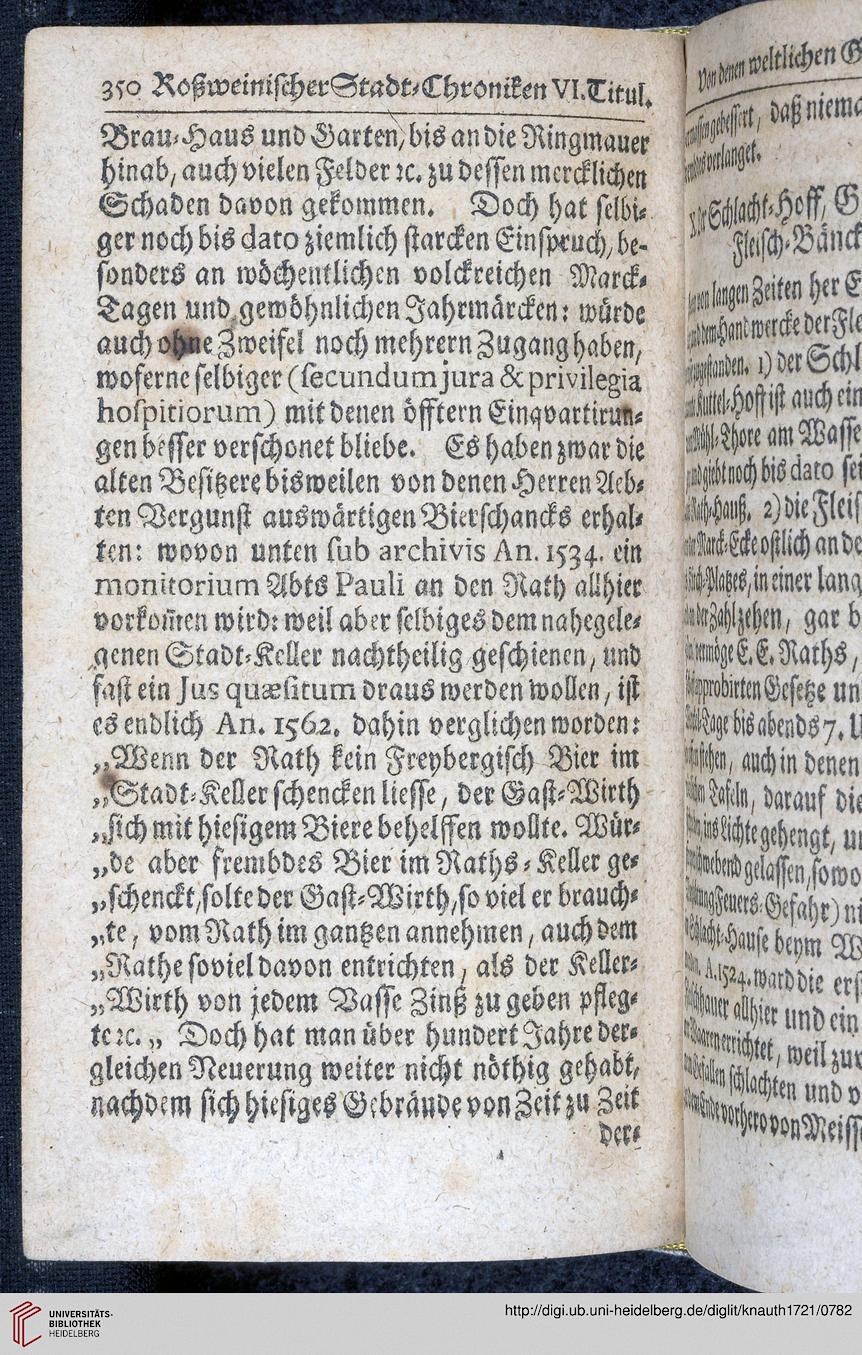 350 Roßweinischer Stadt-Chroniken VI. Titul.
Brau-Haus und Garten, bis an die Ringmauer
hinab, auch vielen Felder ꝛc. zu dessen mercklichen
Schaden davon gekommen. Doch hat selbi-
ger noch bis dato ziemlich starcken Einspruch, be-
sonders an wöchentlichen volckreichen Marck-
Tagen und gewöhnlichen Jahrmärcken: würde
auch ohne Zweifel noch mehrern Zugang haben,
woferne selbiger (secundum jura & privilegia
hospitiorum) mit denen öfftern Einqvartirun-
gen besser verschonet bliebe. Es haben zwar die
alten Besitzere bisweilen von denen Herren Aeb-
ten Vergunst auswärtigen Bierschancks erhal-
ten: wovon unten sub archivis An. 1534. ein
monitorium Abts Pauli an den Rath allhier
vorkom̃en wird: weil aber selbiges dem nahegele-
genen Stadt-Keller nachtheilig geschienen, und
fast ein Jus quæsitum draus werden wollen, ist
es endlich An. 1562. dahin verglichen worden:
„Wenn der Rath kein Freybergisch Bier im
„Stadt-Keller schencken liesse, der Gast-Wirth
„sich mit hiesigem Biere behelffen wollte. Wür-
„de aber frembdes Bier im Raths-Keller ge-
„schenckt, solte der Gast-Wirth, so viel er brauch-
„te, vom Rath im gantzen annehmen, auch dem
„Rathe soviel davon entrichten, als der Keller-
„Wirth von jedem Vasse Zinß zu geben pfleg-
te ꝛc.„ Doch hat man über hundert Jahre der-
gleichen Neuerung weiter nicht nöthig gehabt,
nachdem sich hiesiges Gebräude von Zeit zu Zeit
der-
Von denen weltlichen
daß niema
verlanget.
Schlacht-Hoff,
Fleisch-Bänck
langen Zeiten her
Handwercke der Fle
1) der Schl
Kuttel-Hoff ist auch ein
Mühl-Thore am Wasse
giebt noch bis dato sei
Rath-Hauß. 2) die Fleis
Marck-Ecke ostlich an de
Platzes, in einer lang
der Zahl zehen, gar b
E. E. Raths,
approbirten Gesetze un
Tage bis abends 7.
stehen, auch in denen
Tafeln, darauf die
ins Lichte gehengt,
schwebend gelassen, sowo
Feuers-Gefahr) ni
Hause beym
A. 1524. ward die ers
allhier und ein
errichtet, weil zuv
schlachten und v
vorhero von Meiss
UNIVERSITÄTS-
BIBLIOTHEK
HEIDELBERG
http://digi.ub.uni-heidelberg.de/diglit/knauth1721/0782